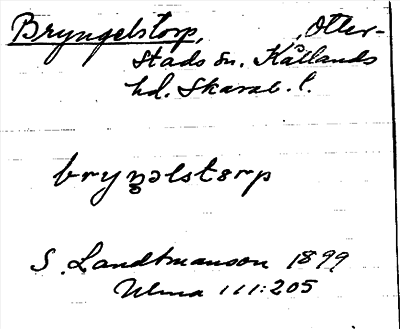 Bryngelstorp, Otter-
stads sn. Kållands
hd. Skarab. l.
bryŋəlstorp
S. Landtmanson 1899
Ulma 111:205